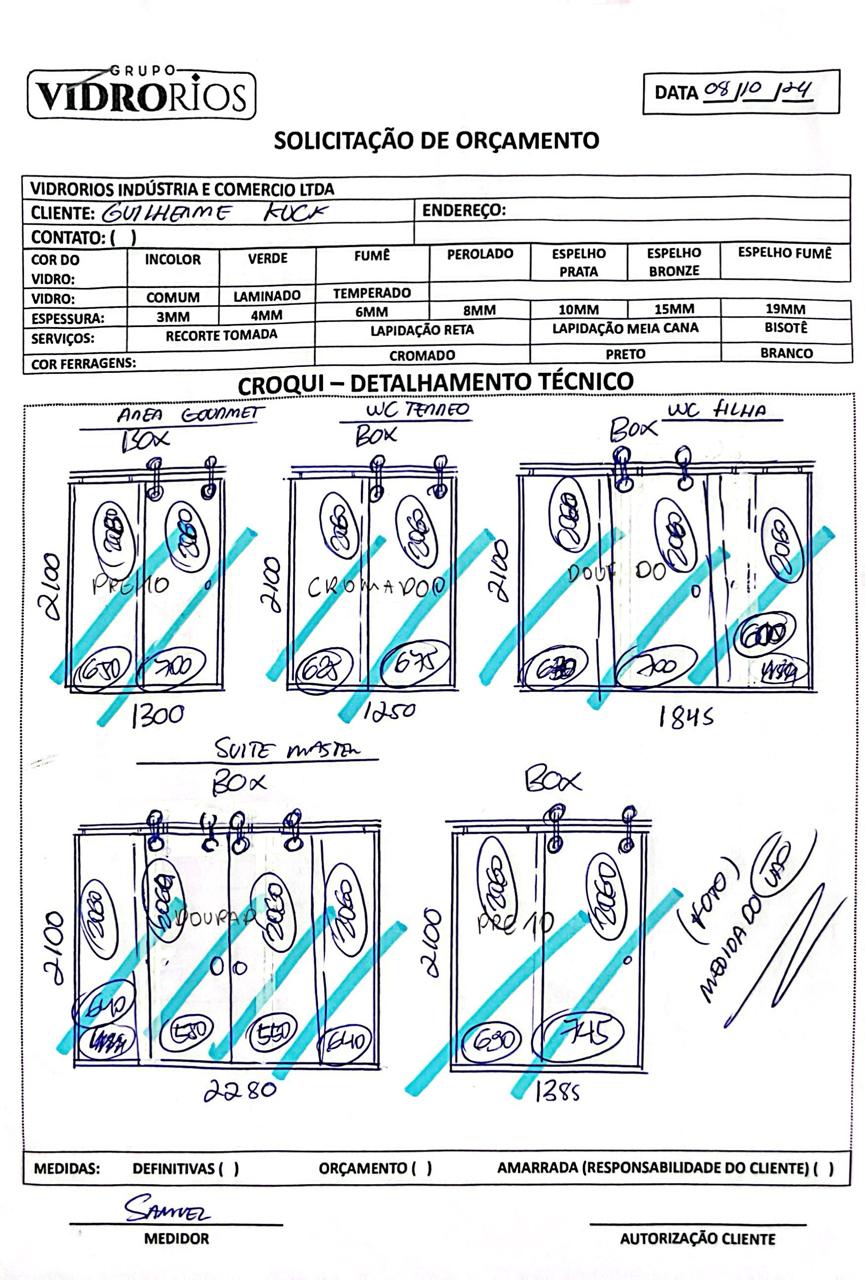 GRUPO
VIDRORIOS
DATA 08/10/24
SOLICITAÇÃO DE ORÇAMENTO
VIDRORIOS INDÚSTRIA E COMERCIO LTDA
CLIENTE: GUILHERME KUCK ENDEREÇO:
CONTATO: ( )
COR DO VIDRO: INCOLOR VERDE FUMÊ PEROLADO ESPELHO PRATA ESPELHO BRONZE ESPELHO FUMÊ
VIDRO: COMUM LAMINADO TEMPERADO
ESPESSURA: 3MM 4MM 6MM 8MM 10MM 15MM 19MM
SERVIÇOS: RECORTE TOMADA LAPIDAÇÃO RETA LAPIDAÇÃO MEIA CANA BISOTÊ
COR FERRAGENS: CROMADO PRETO BRANCO
CROQUI – DETALHAMENTO TÉCNICO
AREA GOURMET WC TERREO WC FILHA
BOX BOX BOX
2060 2060 2060 2060 2060 2060 2060
2100 PRETO 2100 CROMADO 2100
650 700 625 675 700 600
1300 1250 1845
SUITE MASTER
BOX BOX
2060 2060 2060 2060 2060 2060
2100 2100 PRETO
(FOTO)
MEDIDA DO VÃO
640 550 550 640 690 745
2280 1385
MEDIDAS: DEFINITIVAS ( ) ORÇAMENTO ( ) AMARRADA (RESPONSABILIDADE DO CLIENTE) ( )
SAMUEL
MEDIDOR AUTORIZAÇÃO CLIENTE